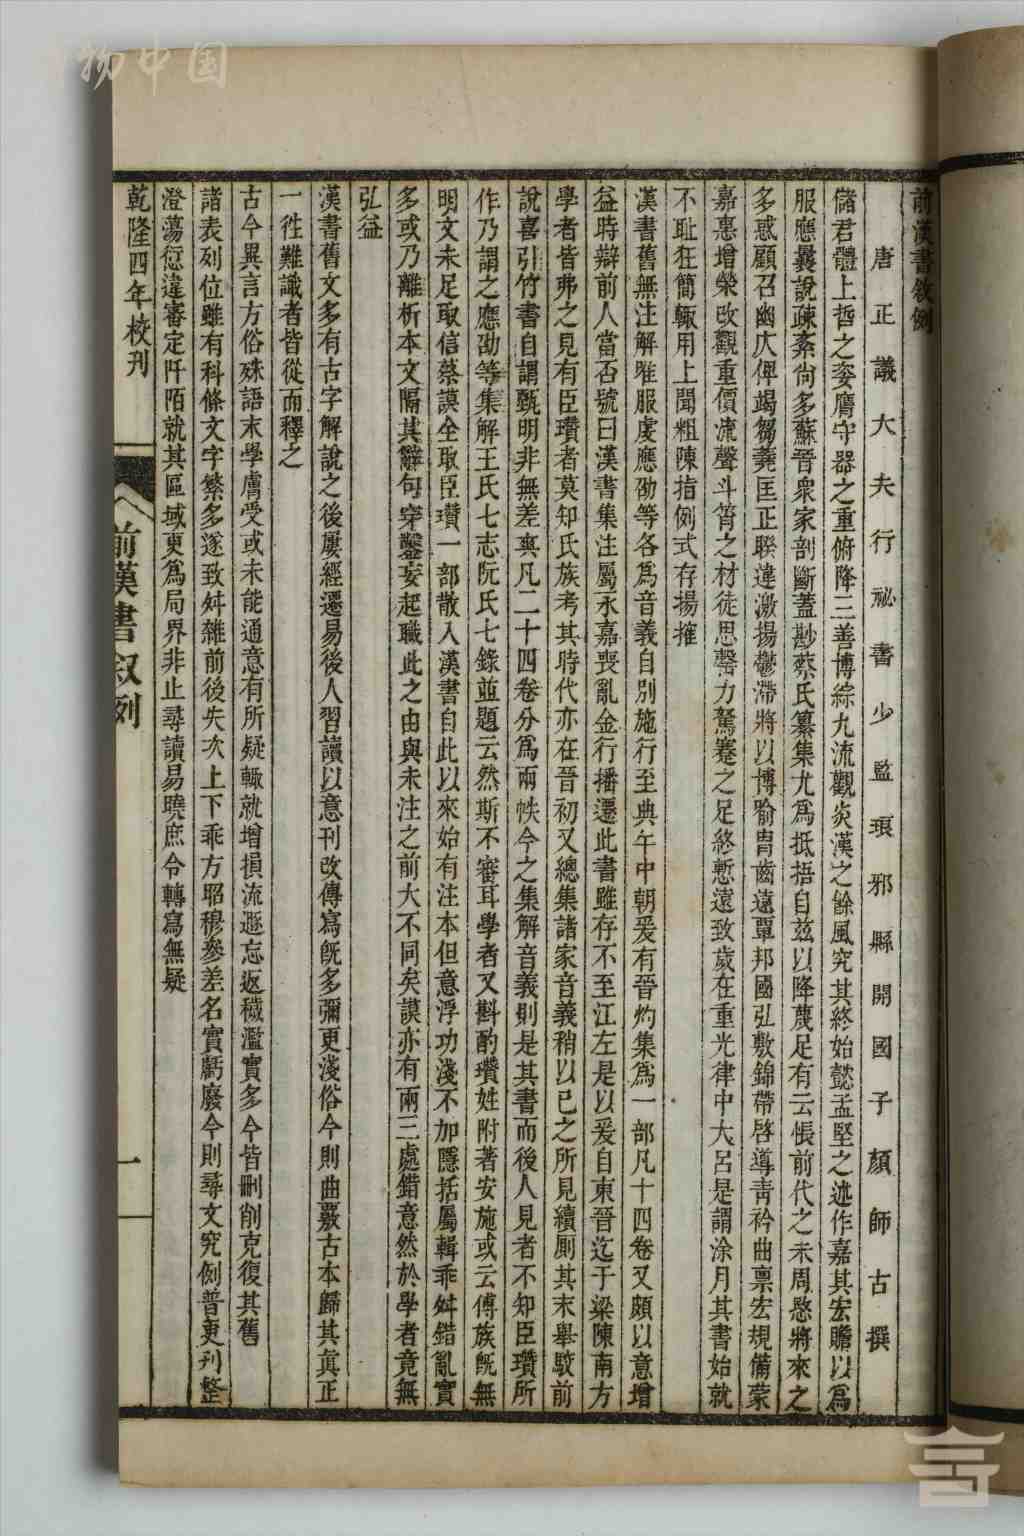 前漢書敘例
唐正議大夫行祕書少監琅邪縣開國子顏師古撰
儲君體上哲之姿膺守器之重俯降三善博綜九流觀炎漢之餘風究其終始懿孟堅之述作嘉其宏贍以為
服應曩說疎紊尚多蘇晉衆家剖斷蓋尠蔡氏纂集尤為抵捂自茲以降蔑足有云悵前代之未周愍將來之
多惑顧召幽仄俾竭芻蕘匡正睽違激揚鬱滯將以博喻胄齒遠覃邦國弘敷錦帶啓導青衿曲稟宏規備蒙
嘉惠增榮改觀重價流聲斗筲之材徒思罄力駑蹇之足終慙遠致歲在重光律中大呂是謂涂月其書始就
不恥狂簡輒用上聞粗陳指例式存揚搉
漢書舊無注解唯服虔應劭等各為音義自別施行至典午中朝爰有晉灼集為一部凡十四卷又頗以意增
益時辯前人當否號曰漢書集注屬永嘉喪亂金行播遷此書雖存不至江左是以爰自東晉迄于梁陳南方
學者皆弗之見有臣瓚者莫知氏族考其時代亦在晉初又總集諸家音義稍以已之所見續厠其末舉駮前
說喜引竹書自謂甄明非無差爽凡二十四卷分為兩帙今之集解音義則是其書而後人見者不知臣瓚所
作乃謂之應劭等集解王氏七志阮氏七錄並題云然斯不審耳學者又斟酌瓚姓附著安施或云傅族既無
明文未足取信蔡謨全取臣瓚一部散入漢書自此以來始有注本但意浮功淺不加隱括屬輯乖舛錯亂實
多或乃離析本文隔其辭句穿鑿妄起職此之由與未注之前大不同矣謨亦有兩三處錯意然於學者竟無
弘益
漢書舊文多有古字解說之後屢經遷易後人習讀以意刊改傳寫既多彌更淺俗今則曲覈古本歸其眞正
一徃難識者皆從而釋之
古今異言方俗殊語末學膚受或未能通意有所疑輒就增損流遯忘返穢濫實多今皆刪削克復其舊
諸表列位雖有科條文字繁多遂致舛雜前後失次上下乖方昭穆參差名實虧廢今則尋文究例普更刊整
澄蕩愆違審定阡陌就其區域更為局界非止尋讀易曉庶令轉寫無疑
乾隆四年校刊
前漢書叙例
一
物中国